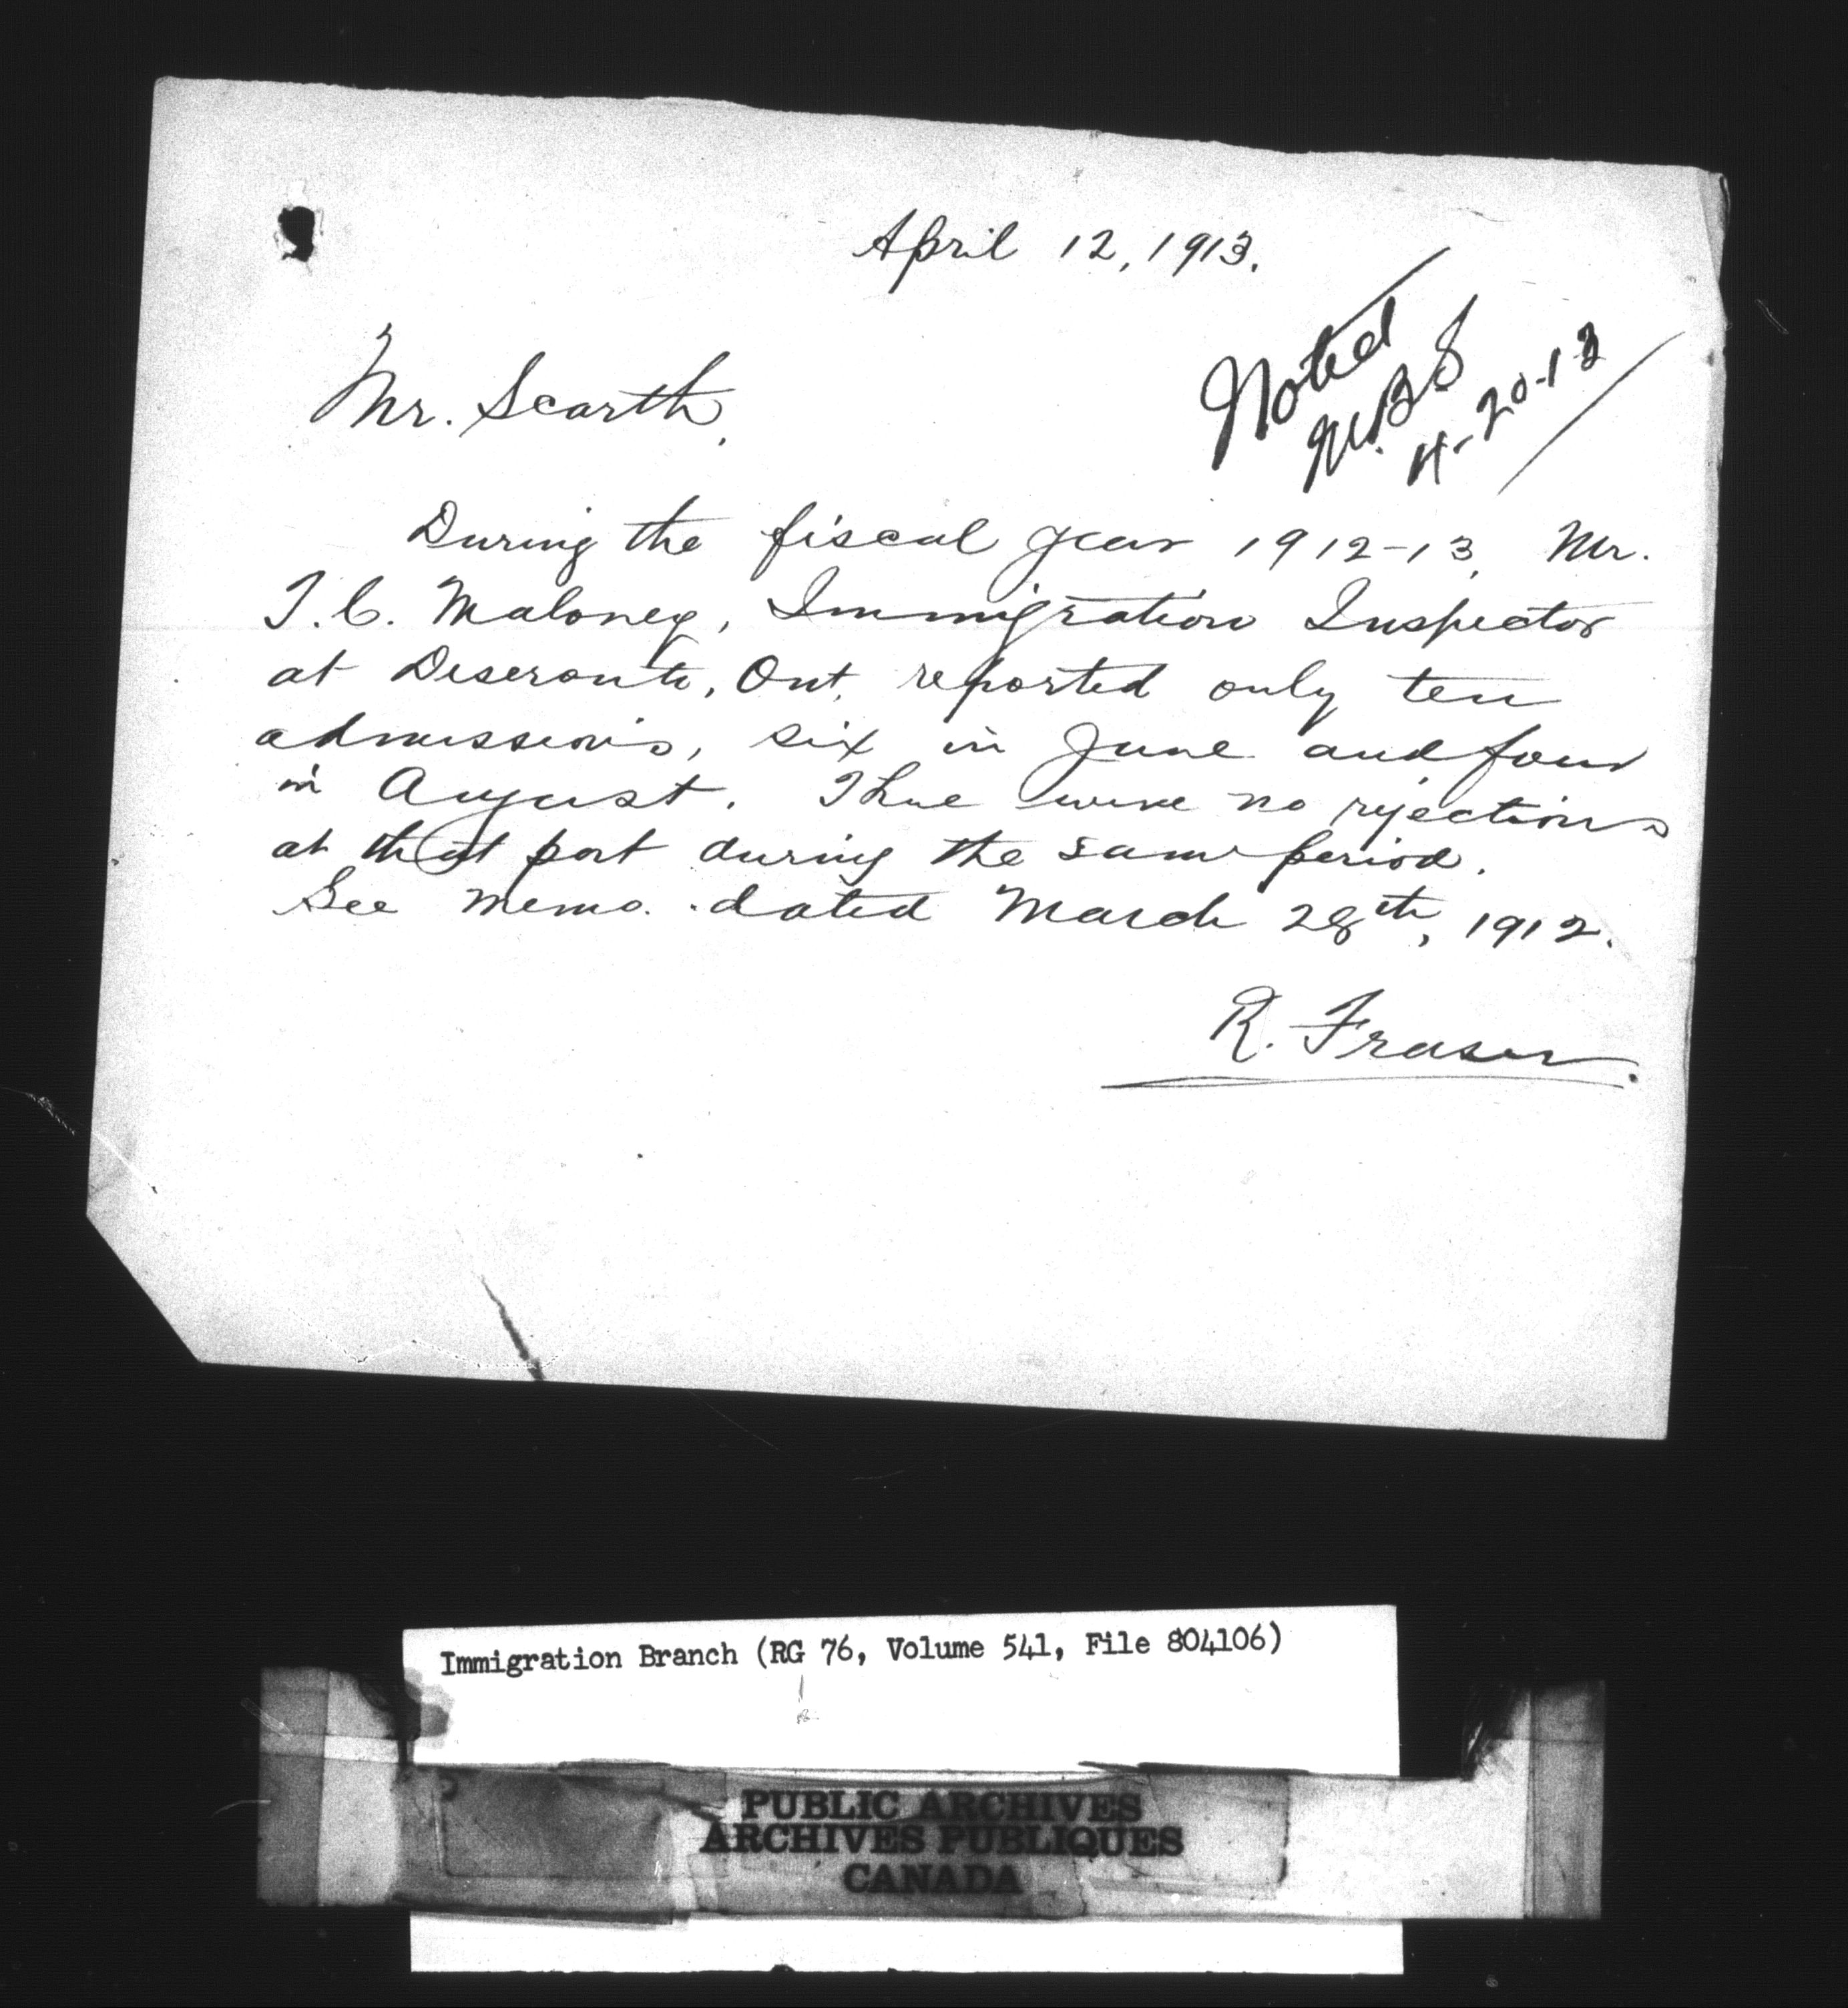 April 12, 1913.
Noted
W.B.S
4-20-13
Mr. Scarth,
During the fiscal year 1912-13, Mr.
T.C. Maloney, Immigration Inspector
at Deseronto, Ont, reported only ten
admissions, six in June and four
in August. There were no rejections
at that port during the same period.
See memo. dated March 28th, 1912.
R. Fraser.
Immigration Branch (RG 76, Volume 541, File 804106)
PUBLIC ARCHIVES
ARCHIVES PUBLIQUES
CANADA